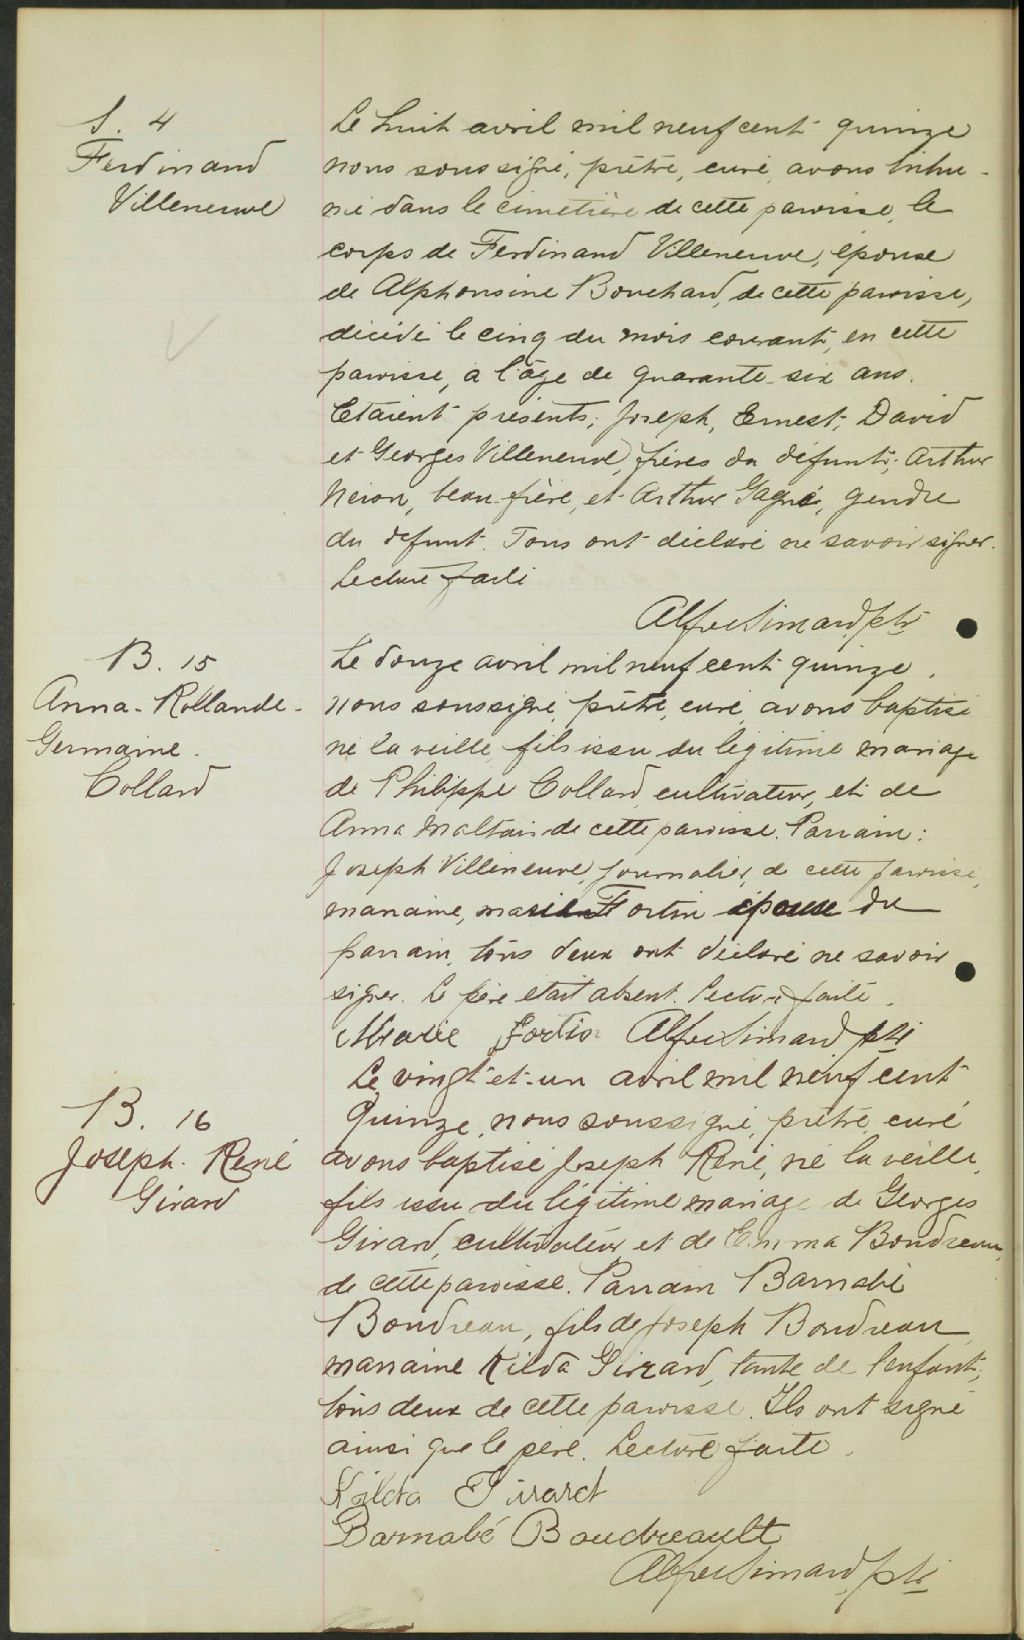 S. 4
Ferdinand
Villeneuve
Le huit avril mil neuf cent quinze
nous soussigné, prêtre, curé, avons inhu-
mé dans le cimetière de cette paroisse, le
corps de Ferdinand Villeneuve, épouse
de Alphonsine Bouchard, de cette paroisse,
décédé le cinq du mois courant, en cette
paroisse, à l'âge de quarante-six ans.
Etaient présents; Joseph, Ernest, David
et Georges Villeneuve, frères du défunt; Arthur
Néron, beau-frère, et Arthur Gagné, gendre
du défunt. Tous ont déclaré ne savoir signer.
Lecture faite
Alfred Simard, ptr
B. 15
Anna-Rollande-
Germaine
Collard
Le douze avril mil neuf cent quinze,
nous soussigné, prêtre, curé, avons baptisé
né la veille, fils issu du légitime mariage
de Philippe Collard, cultivateur, et de
Anna Maltais de cette paroisse. Parrain:
Joseph Villeneuve, journalier, de cette paroisse,
marraine, Marie Fortin épouse du
parrain, tous deux ont déclaré ne savoir
signer. Le père était absent. Lecture faite.
Marie Fortin Alfred Simard ptr
B. 16
Joseph. René
Girard
Le vingt-et-un avril mil neuf cent
quinze, nous soussigné, prêtre, curé
avons baptisé Joseph René, né la veille,
fils issu du légitime mariage de Georges
Girard, cultivateur, et de Emma Boudreau,
de cette paroisse. Parrain Barnabé
Boudreau, fils de Joseph Boudreau
marraine Kilda Girard, tante de l'enfant,
tous deux de cette paroisse. Ils ont signé
ainsi que le père. Lecture faite.
Kilda Girard
Barnabé Boudreault
Alfred Simard, ptr